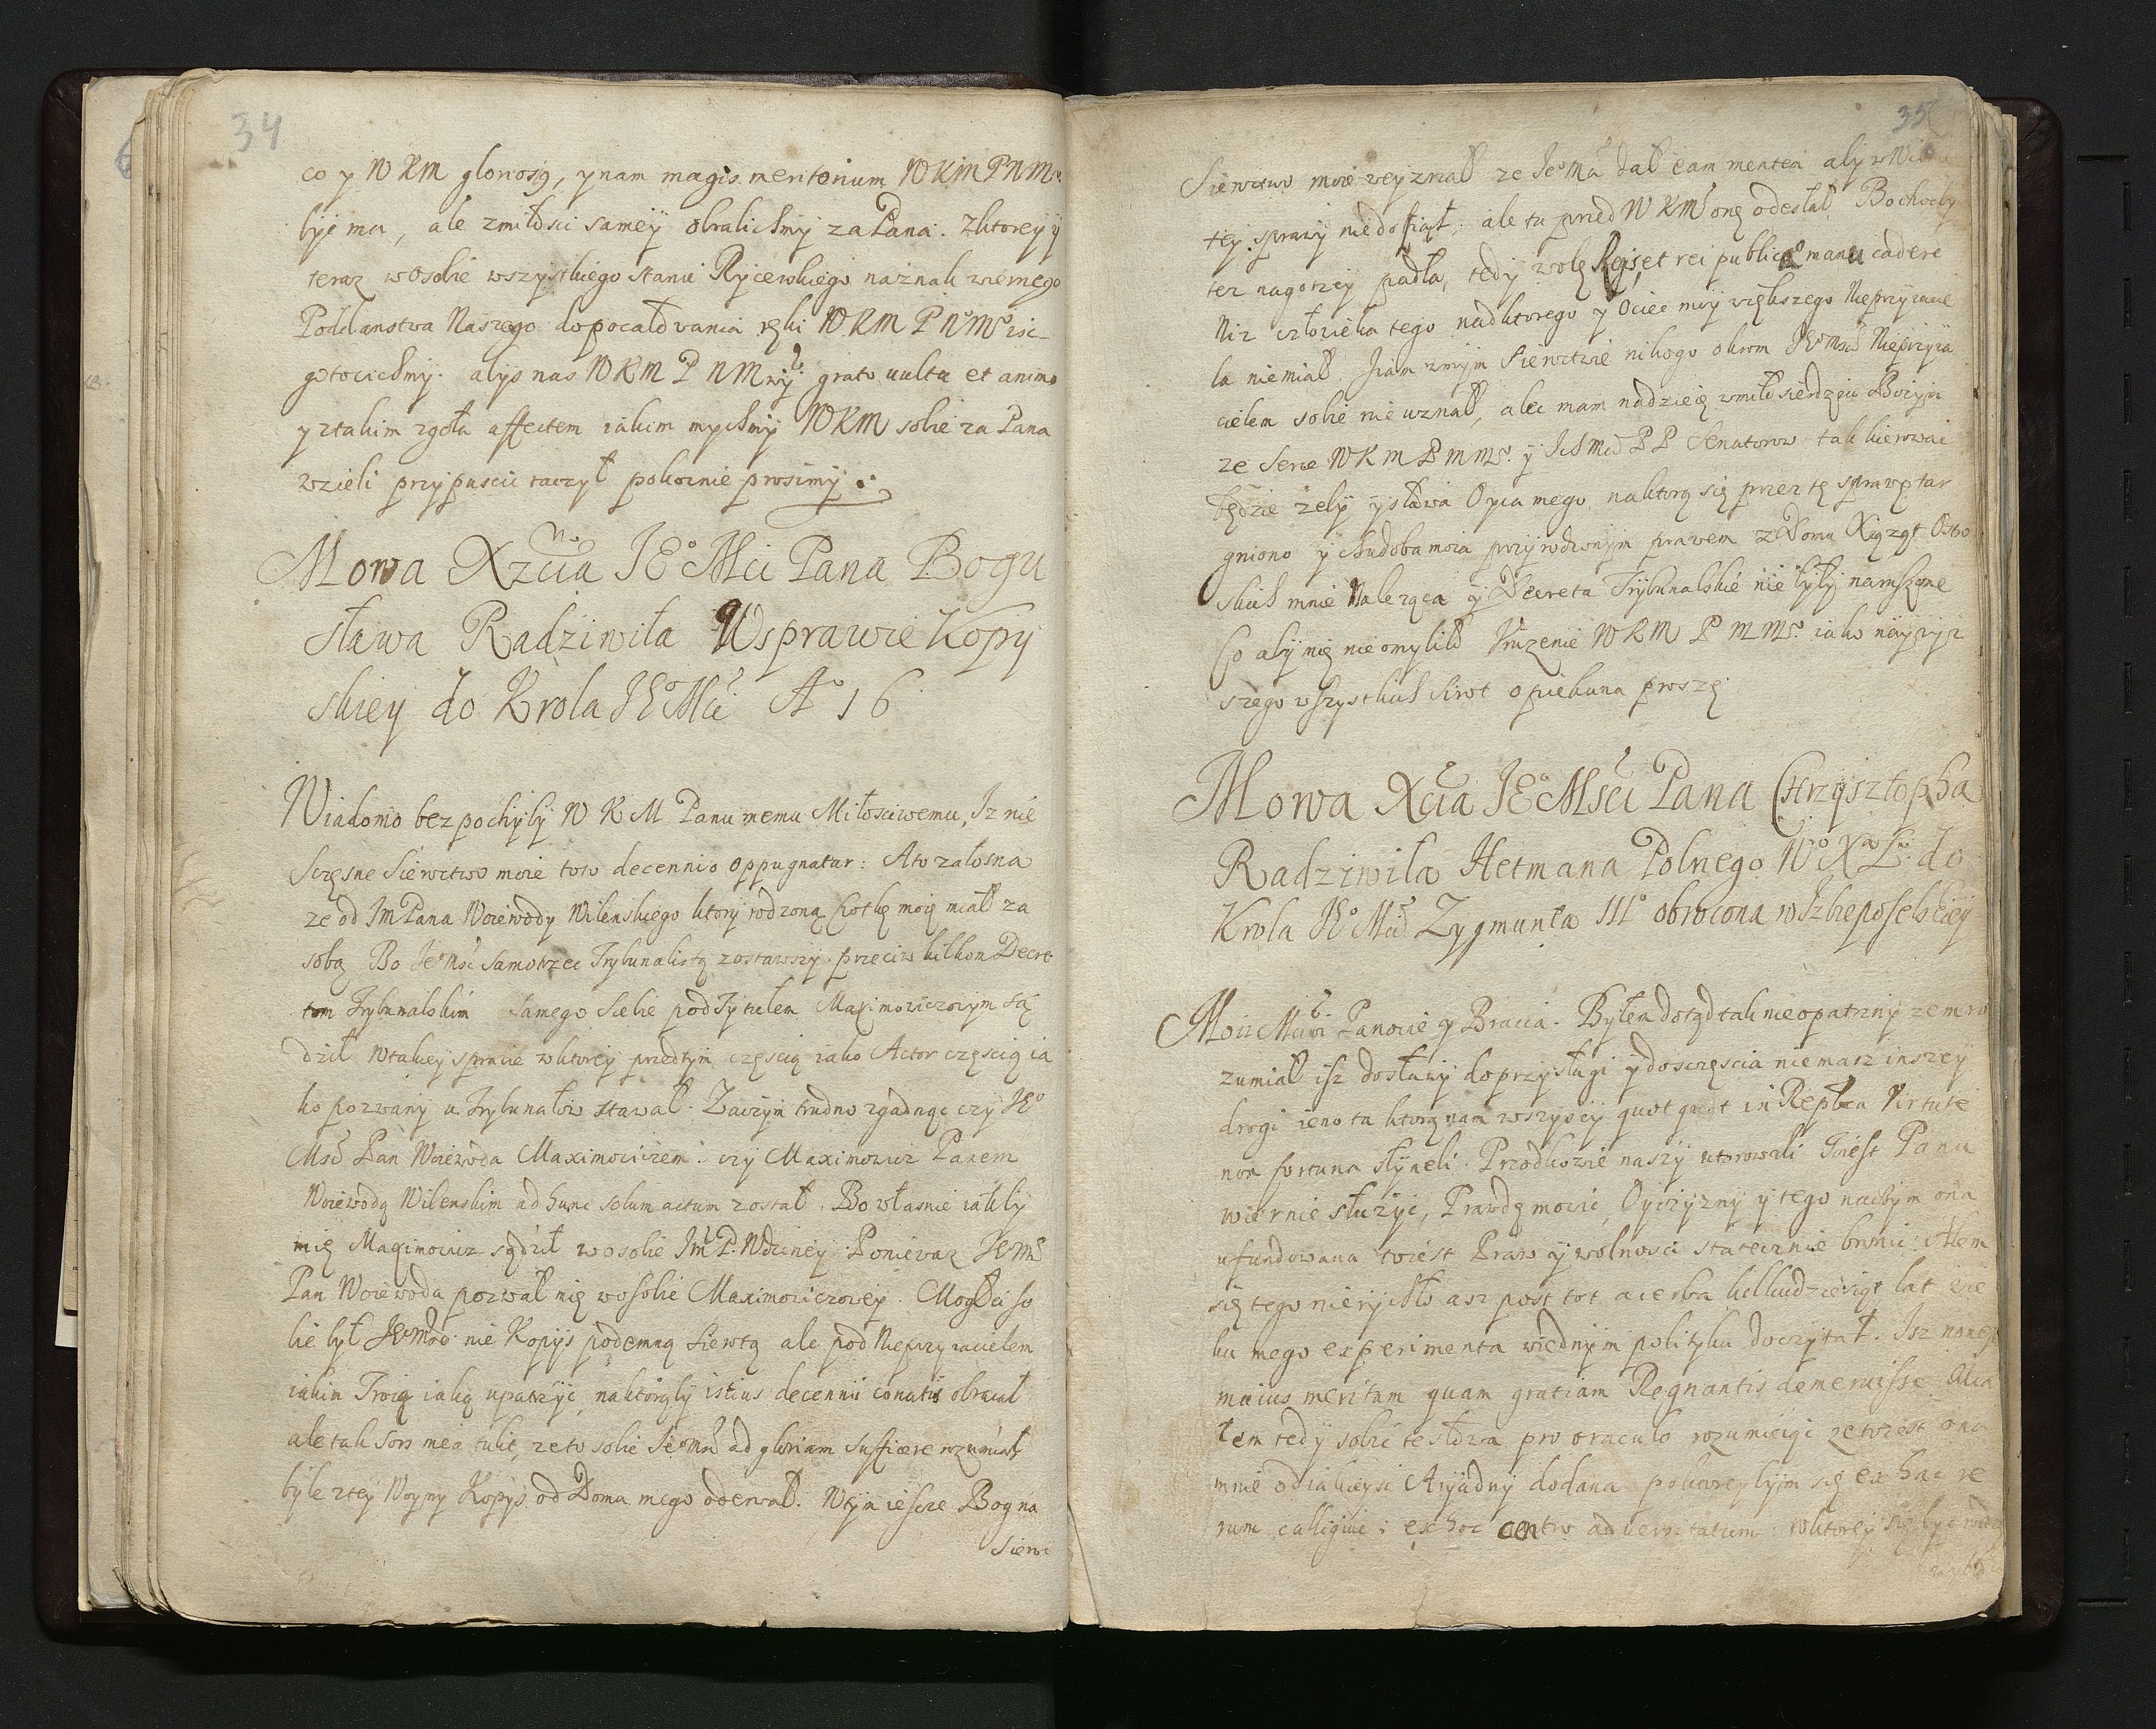 34
co y W K M gloriosũ, y nam magis meritorium W K M P N M
być ma, ale z miłosci samey obralichmy za Pana. Z ktorey y
teraz w osobie wszystkiego stanu Rycerskiego na znak wiernego
Poddanstwa Naszego do pocałowania ręki W K M P N Mo isc
gotowichmy. abys nas W K M P N Mwy grato vultu et animo
y z takim zgoła affectem iakim mychmy W K M sobie za Pana
wzieli przypuscic raczył pokornie prosimy.
Mowa Xzcia JEo Mci Pana Bogu
sława Radziwiła W sprawie Kopy
skiey do Krola JEo Mci Ao 16
Wiadomo bez pochyby W K M Panu memu Miłosciwemu, Iz nie
sczęsne Sieroctwo moie toto decennio oppugnatur: A to załosna
ze od Im Pana Woiewody Wilenskiego ktory rodzoną Ciotkę moię miał za
sobą Bo Jeo Msc samotrzec Trybunalistą zostawszy przeciw kilkom Decre
tom Trybunalskim samego siebie pod Tytułem Maximowiczowym są
dził w takiey sprawie w ktorey przedtym częscią iako Actor częscią ia
ko pozwany u Trybunałow stawał. Zaczym trudno zgadnąc czy JEo
Msc Pan Woiewoda Maximowiczem: czy Maximowicz Panem
Woiewodą Wilenskim ad hunc solum actum został. Bo własnie iakby
mię Maximowicz sądził w osobie Im P. Wdziney Poniewaz Jeo Ms
Pan Woiewoda pozwał mię w osobie Maximowiczowey. Mogłci so
bie był Jeo Msc nie Kopys podemną Sierotą ale pod Nieprzyiacielem
iakim Troią iaką upatrzyc, na ktorąby istius decennii conatus obracał
ale tak sors mea tulit, ze to sobie Jeo Msc ad gloriam sufficere rozumiał
byle z tey Woyny Kopys od Domu mego oderwał. W tym iescze Bog na
Sieroc
35
Sieroctwo moie weyzrzał ze Jeo Mci dał eam mentem aby w Wilnie
tey sprawy nie dosiągł, ale tu przed W K Ms onę odesłał. Bo chocby
tez nagorzey padła, tedy wolę Regis et rei publicæ manu cadere
Niz człowieka tego nad ktorego y Ociec moy większego Nieprzyiacie
la nie miał. I iam w mym Sieroctwie nikogo okrom JEo Msci Nieprzyia
cielem sobie nie uznał, alec mam nadzieię w miłosierdziu Bozym
ze Serce W K M P M Ms. y Ich Mci P P Senatorow tak kierowac
będzie zeby y sława Oyca mego na ktorą się przez tę sprawę tar
gniono y chudoba moia przyrodzonym prawem z Domu Xiąząt Ostro
skich mnie Naleząca y Decreta Trybunalskie nie były naruszone
Co aby mię nie omyliło Kruzenie W K M P M Ms. iako naywyz
szego wszystkich Sirot opiekuna proszę.
Mowa Xcia JEo Msci Pana Chrzysztopha
Radziwiła Hetmana Polnego Wo Xa Lo do
Krola JEo Mci Zygmunta IIIo obrocona w Izbie poselskiey
Moii Mciwi Panowie y Bracia. Byłem dotąd tak nieopatrzny zem ro
zumiał isz do sławy do przysługi y do sczęscia nie masz inszey
drogi ieno ta ktorą nam wszyscy quotquot in Repblca Virtute
non fortuna słyneli. Przodkowie naszy utorowali To iest Panu
wiernie słuzyc, Prawdę mowic, Oyczyzny y tego na czym ona
ufundowana to iest Praw y wolnosci statecznie bronic. Alem
się tego nierychło asz post tot acerba kilkudziesiąt lat wie
ku mego experimenta w iednym polityku doczytał. Isz non esse
maius meritum quam gratiam Regnantis demeruisse. Mia
łem tedy sobie te słowa pro oraculo rozumieiąc ze to iest ona
mnie od iakieysi Aryadny dodana po ktoreybym się ex hac re
rum calligine: ex hoc centro adversitatum w ktorey się byc widzę